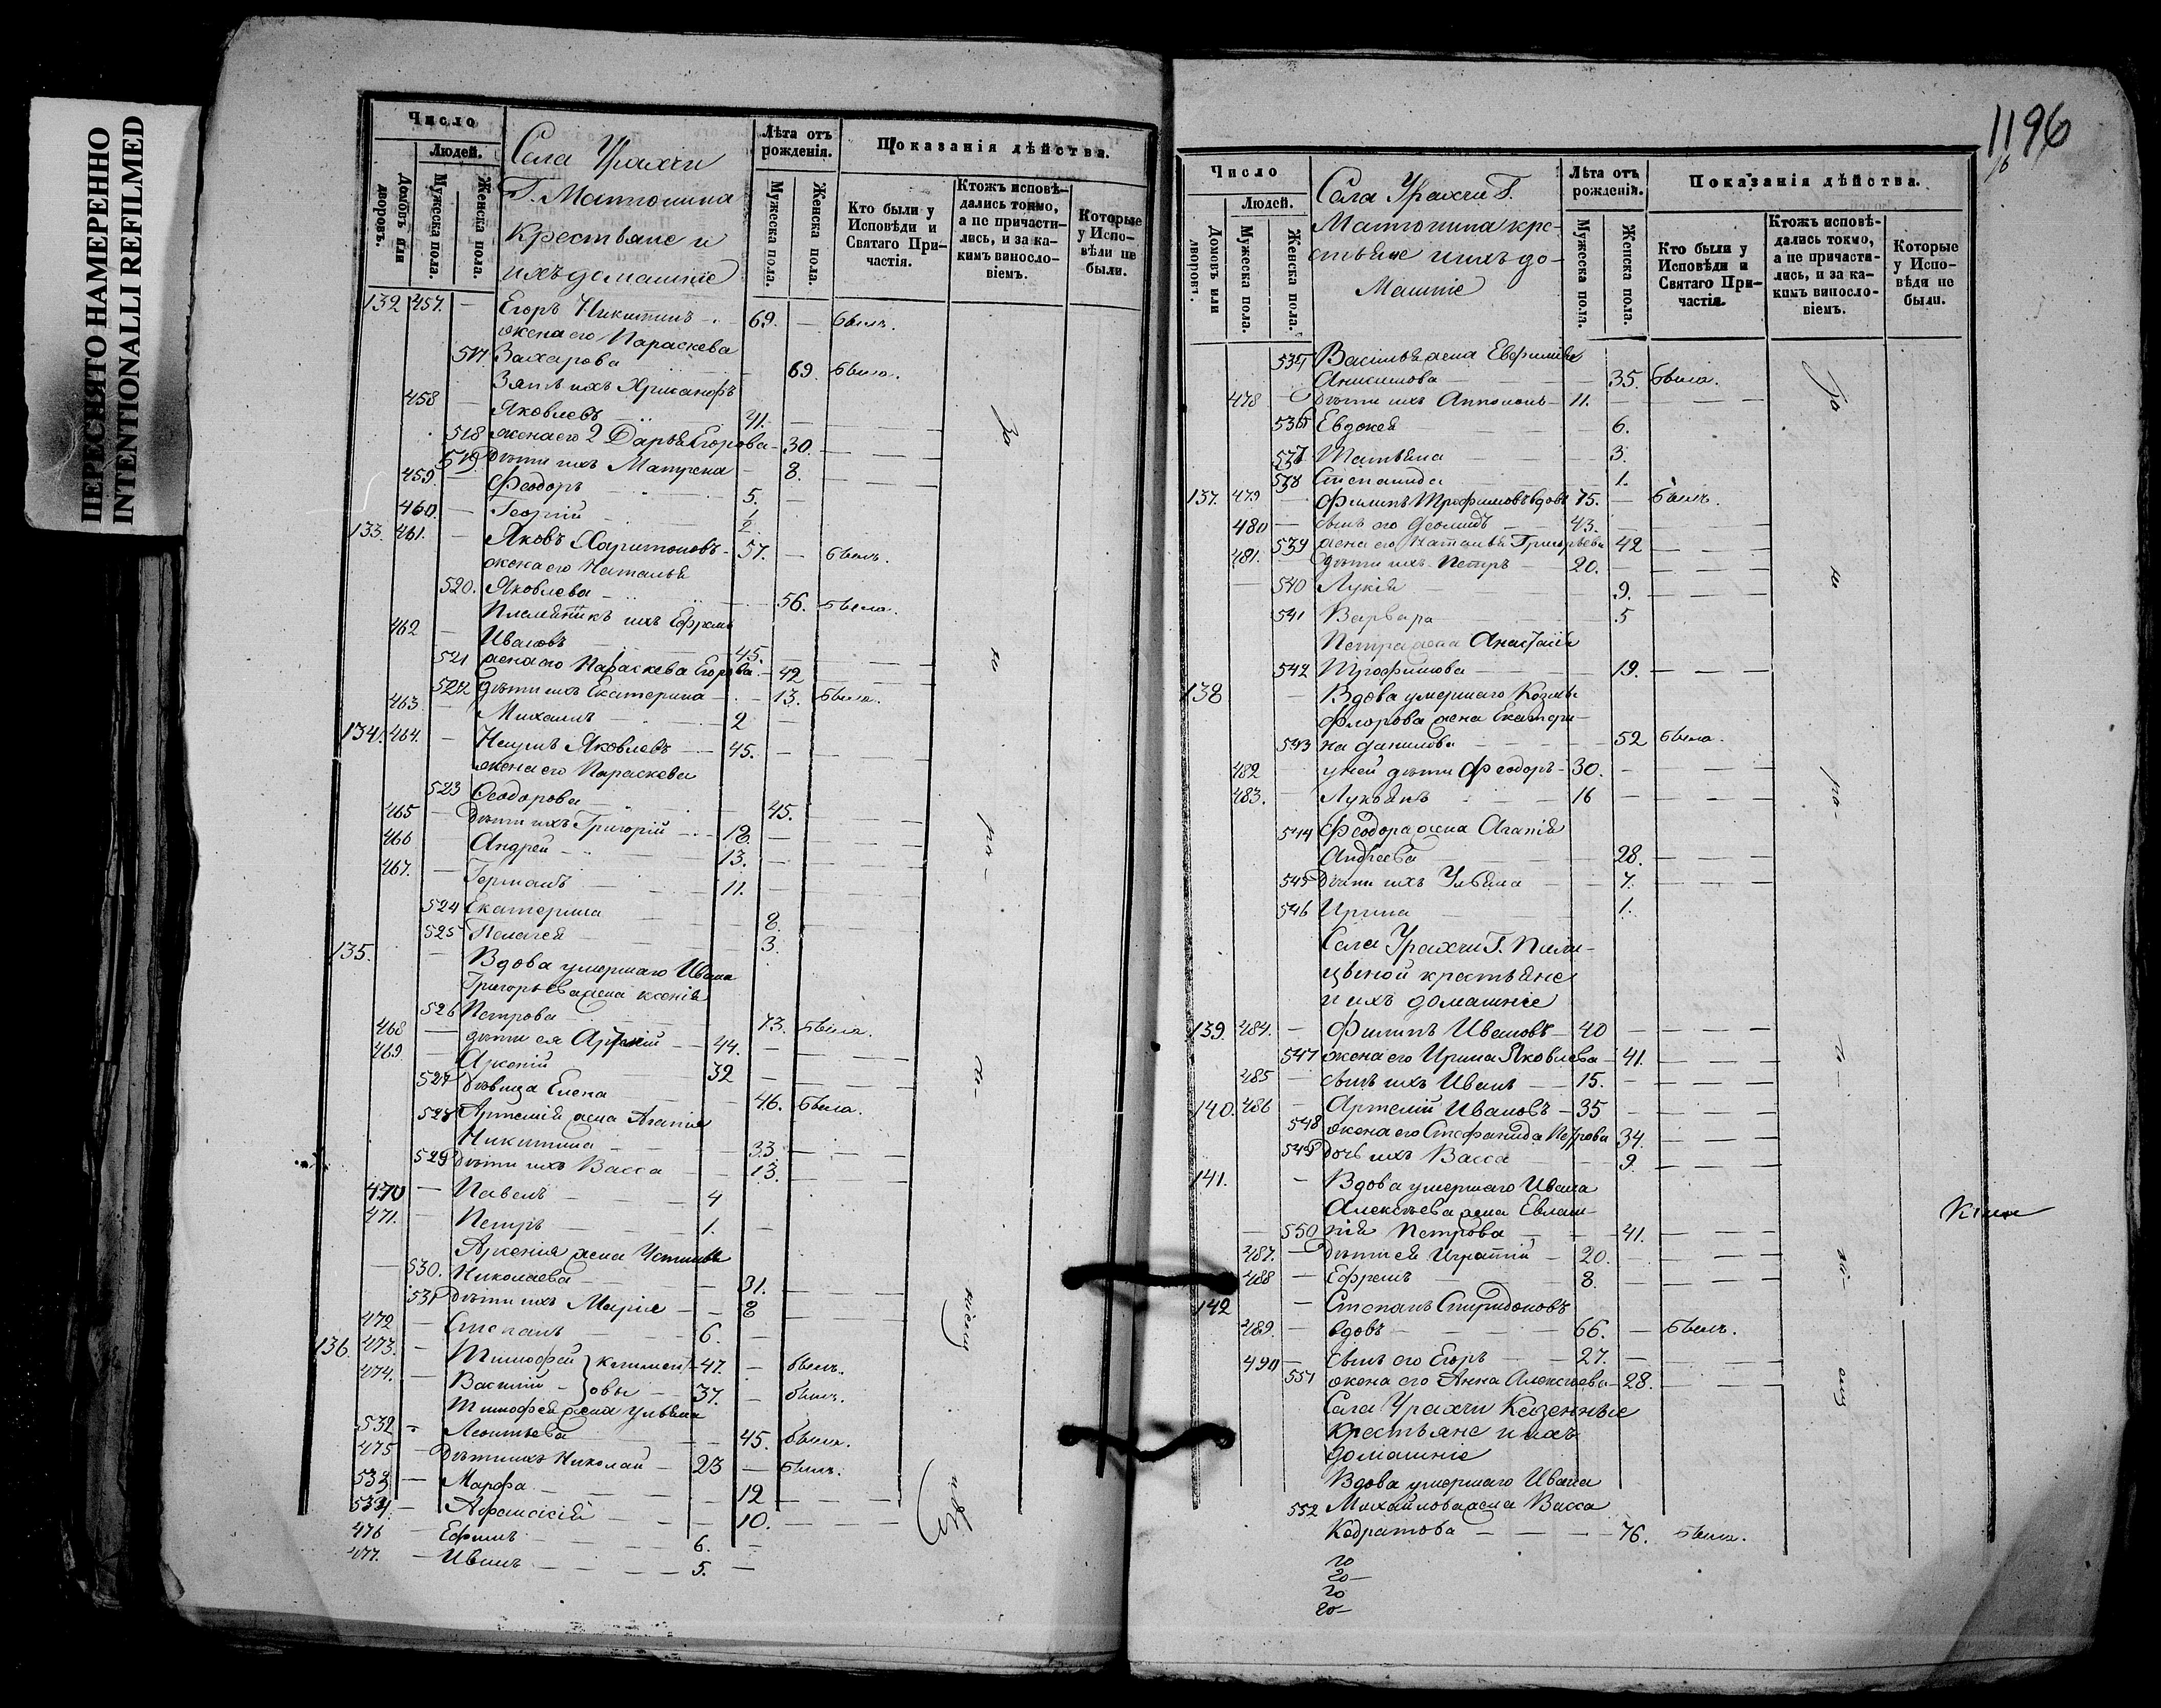 ПЕРЕСНЯТО НАМЕРЕННО
INTENTIONALLI REFILMED
Число
Людей.
Домовъ или дворовъ.
Мужеска пола.
Женска пола.
Села Урахчи
Г. Матюнина
крестьяне и
ихъ домашніе
Лѣта отъ рожденія.
Мужеска пола.
Женска пола.
Показанія дѣйства.
Кто были у Исповѣди и Святаго Причастія.
Ктожъ исповѣдались токмо, а не причастились, и за какимъ винословіемъ.
Которые у Исповѣди не были.
132 457. — Егоръ Никитинъ — 69. — былъ.
жена его Параскева
517 Захарова — 69. была.
Зять ихъ
458 — Яковлевъ — 41. —
518 жена его 2 Дарья Егорова — 30. —
519 дѣти ихъ Матрена — 8. —
459. — Феодоръ — 5. —
460. — Георгій — 2. —
133. 461. — Яковъ Харитоновъ — 57. — былъ.
жена его Наталья
520. Яковлева — 56. была.
Племянникъ ихъ Ефремъ
462 — Ивановъ — 45. —
521 жена его Параскева Егорова — 42
522 дѣти ихъ Екатерина — 13. была.
463. — Михаилъ — 2 —
134. 464. — Наумъ Яковлевъ — 45. —
жена его Параскева
523 Феодорова — 45.
465 — дѣти ихъ Григорій — 18. —
466 — Андрей — 13. —
467. — Германъ — 11. —
524 Екатерина — 8.
525 Пелагея — 3.
135. — Вдова умершаго Ивана
Григорьева жена Ксенія
526 Петрова — 73. была.
468 — дѣти ея Артемій — 44. —
469. — Арсеній — 32 —
527 дѣвица Елена — 46. была.
528 Артемія жена Агапія
Никитина — 33. —
529 дѣти ихъ Васса — 13. —
470 — Павелъ — 4
471. — Петръ — 1. —
Арсенія жена Устинья
530. Николаева — 31. —
531 дѣти ихъ Марія — 8
472 — Степанъ — 6. —
136. 473. — Тимофей } Климент- 47. — былъ.
474. — Василій } овы — 37. — былъ.
Тимофея жена Ульяна
532 - Леонтьева — 45. была.
475 — дѣти ихъ Николай — 23 — былъ.
533 — Марфа — 12 —
534. — 10. —
476 — Ефимъ — 6. —
477. — Иванъ — 5. —
1196
Число
Людей.
Домовъ или дворовъ.
Мужеска пола.
Женска пола.
Села Урахчи Г.
Матюнина кре-
стьяне и ихъ до-
машніе
Лѣта отъ рожденій.
Мужеска пола.
Женска пола.
Показанія дѣйства.
Кто были у Исповѣди и Святаго Причастія.
Ктожъ исповѣдались токмо, а не причастились, и за какимъ винословіемъ.
Которые у Исповѣди не были.
Василья жена Евфимія
Аникинова — 35. была.
478 — дѣти ихъ — 11. —
Евдокея — 6.
537 Татьяна — 3.
538 Степанида — 1.
137. 479 — Филипъ Трофимовъ вдовъ 75. — былъ.
480 — сынъ его — 43. —
539 жена его Наталья Григорьева 42 —
481. — дѣти ихъ Петръ — 20. —
540 Лукія — 9. —
541 Варвара — 5
Петра жена Анастасія
542 Трофимова — 19. —
138 — Вдова умершаго Козмы
Флорова жена Екатери-
543 на Данилова — 52 была.
482 у ней дѣти Феодоръ — 30. —
483. — Лукоянъ — 16 —
544 Феодора жена Агапія
Андреева — 28. —
545 дѣти ихъ Ульяна — 7. —
546 Ирина — 1.
Села Урахчи Г.
крестьяне
и ихъ домашніе
139. 484. — Филипъ Ивановъ — 40 —
547 жена его Ирина Яковлева — 41. —
485 — сынъ ихъ Иванъ — 15. —
140. 486 — Артемій Ивановъ — 35 —
548 жена его Стефанида Петрова 34. —
549 дочь ихъ Васса — 9. —
141. — Вдова умершаго Ивана
Алексѣева жена Евлам-
550 пія Петрова — 41. —
487. — дѣти ея Игнатій — 20. —
488 — Ефремъ — 8. —
142 — Степанъ Спиридоновъ
489. — вдовъ — 66. — былъ.
490 — сынъ его Егоръ — 27. —
551 жена его Анна Алексѣева — 28. —
Села Урахчи Казенные
крестьяне и ихъ
домашніе
Вдова умершаго Ивана
552 Михайлова жена Васса
Кодратова — 76. была.